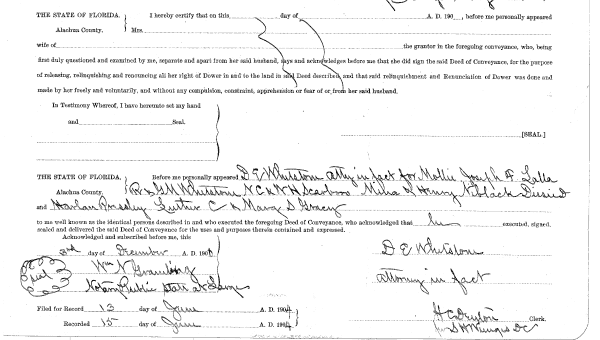 THE STATE OF FLORIDA, I hereby certify that on this day of A. D. 190 , before me personally appeared
Alachua County. Mrs
wife of the grantor in the foregoing conveyance, who, being
first duly questioned and examined by me, separate and apart from her said husband, says and acknowledges before me that she did sign the said Deed of Conveyance, for the purpose
of releasing, relinquishing and renouncing all her right of Dower in and to the land in said Deed described, and that said relinquishment and Renunciation of Dower was done and
made by her freely and voluntarily, and without any compulsion, constraint, apprehension or fear of or from her said husband.
In Testimony Whereof, I have hereunto set my hand
and Seal.
[SEAL]
THE STATE OF FLORIDA, Before me personally appeared D E Whetstone atty in fact for Mollie Joseph F Lalla
Alachua County. G M Whetstone N C & N H Scarboro & Henry Niblack
and Harlan Presley C & Mary S Gracey
to me well known as the identical persons described in and who executed the foregoing Deed of Conveyance, who acknowledged that he executed, signed,
sealed and delivered the said Deed of Conveyance for the uses and purposes therein contained and expressed.
Acknowledged and subscribed before me, this
3rd day of December A. D. 190
Seal Wm N
Notary Public State at Large
D E Whetstone
attorney in fact
Filed for Record 13 day of June A. D. 1904
Recorded 15 day of June A. D. 1904
H C Denton Clerk.
D C